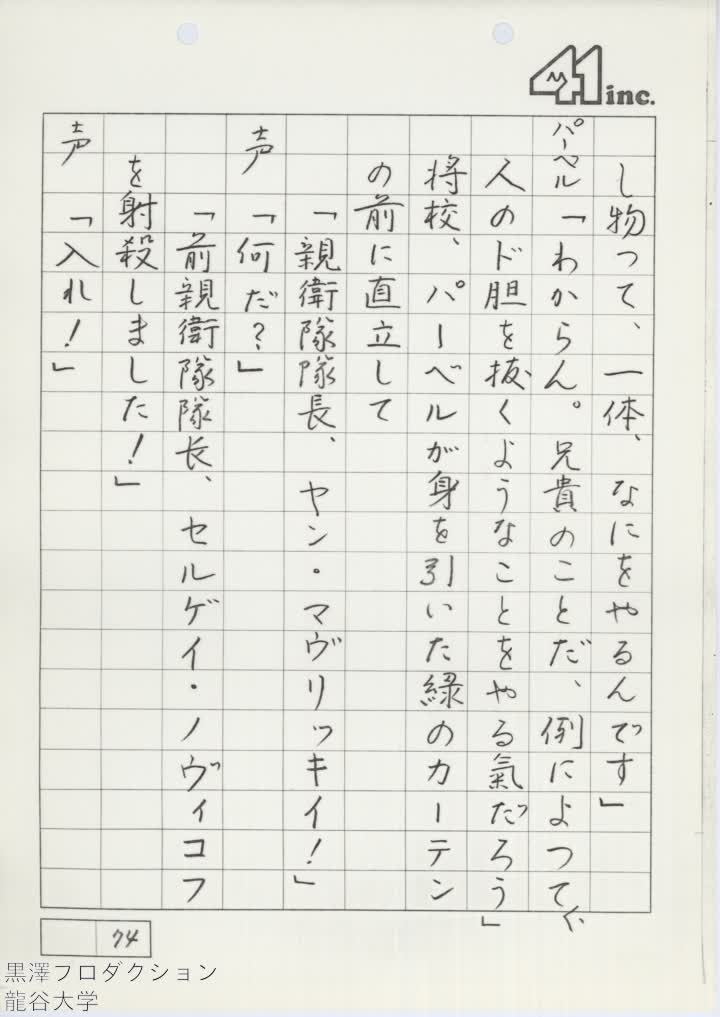 41 inc.
し物って、一体、なにをやるんです」
パーベル「わからん。兄貴のことだ、例によつて
人のド胆を抜くようなことをやる氣だろう」
将校、パーベルが身を引いた緑のカーテン
の前に直立して
「親衛隊隊長、ヤン・マヴリッキイ！」
声「何だ？」
「前親衛隊隊長、セルゲイ・ノヴィコフ
を射殺しました！」
声「入れ！」
74
黒澤プロダクション
龍谷大学